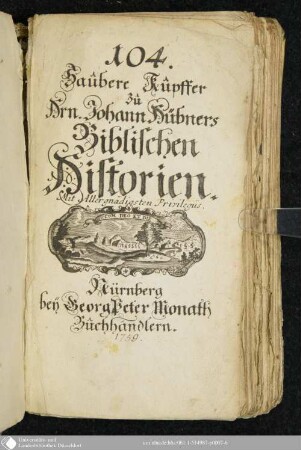 104.
Saubere Kupffer
zu
Hrn. Johann Hübners
Biblischen
Historien.
Mit Allergnädigsten Privilegiis.
Nürnberg
beÿ Georg Peter Monath
Buchhändlern.
1759.
Universitäts- und
Landesbibliothek Düsseldorf